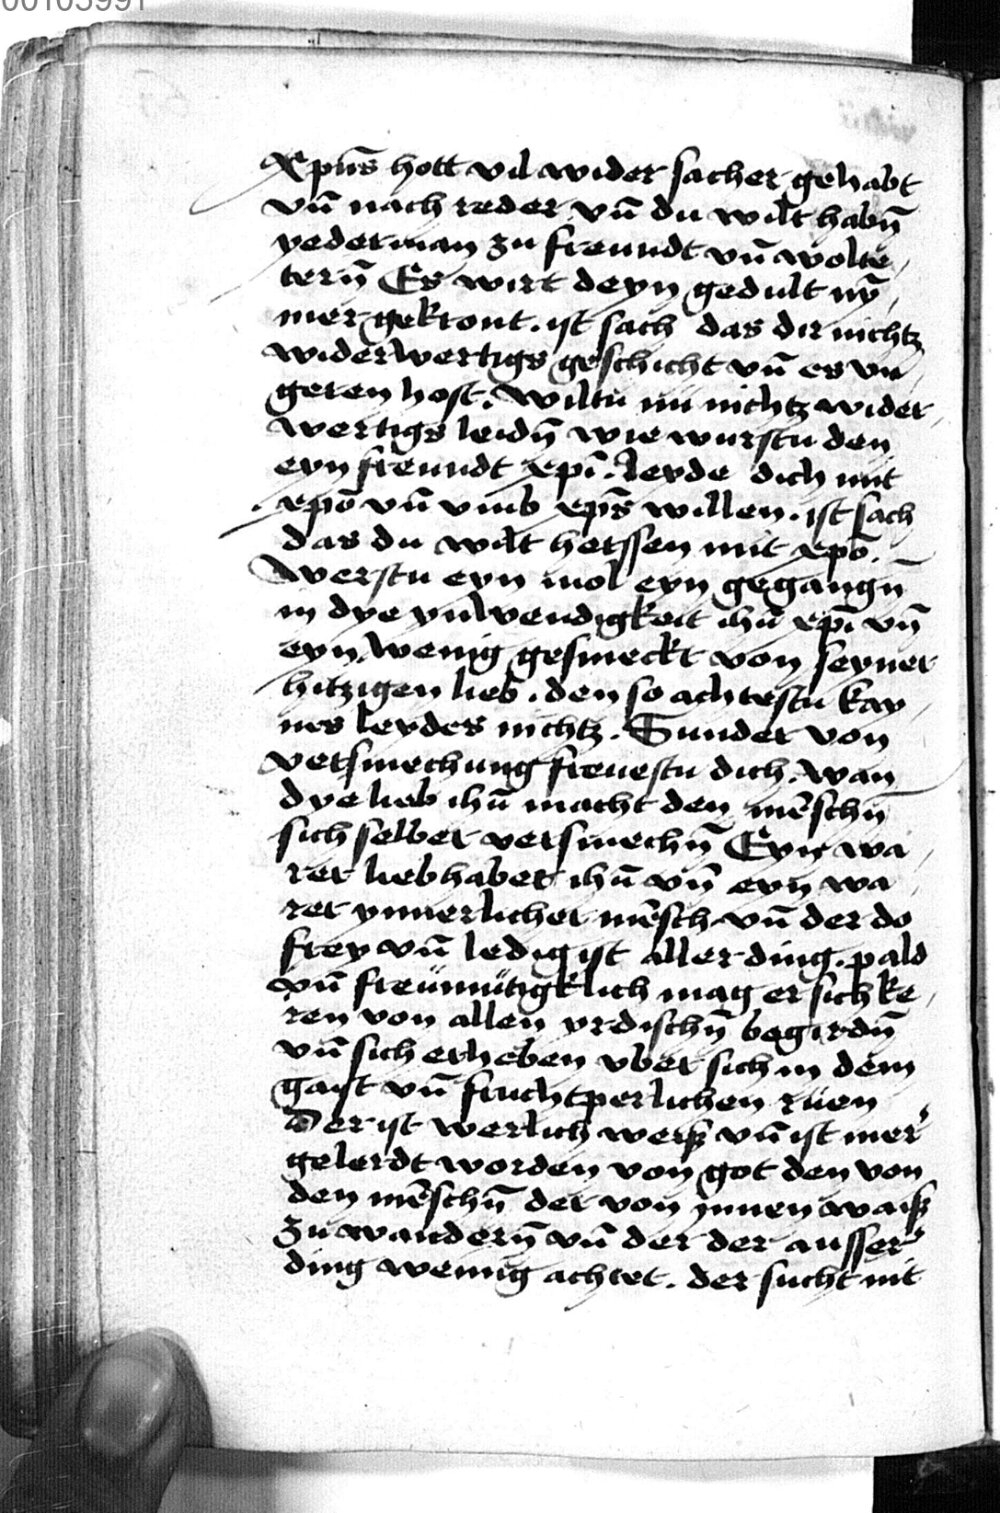 00103991
xpūs hott vil wider sacher gehabt
vn̄ nach reder vn̄ du wilt habn̄
yederman zu freundt vn̄ wolte
tern̄ Es wirt deyn gedult ny̅
mer gekront. ist sach das dir nichtz
widerwertigs geschicht vn̄ es vn
geren host. wiltu nu nichtz wider
wertigs leidn̄ wie wurstu den
eyn freundt xpi̅. leyde dich mit
xpō vn̄ vmb xps̄ willen. ist sach
das du wilt herssen mit xpō.
Werstu eyn mol eyn gegangn̄
in dye ynwendigkeit ihū xpi̅ vn̄
eyn wenig gesmeckt von seyner
hitzigen lieb. den so achtestu kay
nes leydes nichtz. Sunder von
versmechung freuestu dich. wan
dye lieb ihū macht den mēschn̄
sich selber versmechn̄ Eyn wa
rer liebhaber ihū vn̄ eyn wa
rer ynnerlicher mēsch vn̄ der do
frey vn̄ ledig ist aller ding. pald
vn̄ freümütigklich mag er sich ke
ren von allen yrdischn̄ begirdn̄
vn̄ sich erheben vber sich in dem
gaist vn̄ fruchtperlichen rüen
Der ist werlich weiß vn̄ ist mer
gelerdt worden von got den von
den mēschn̄ der von ynnen waiß
zu wandern̄ vn̄ der der ausser
ding wenig achtet. der sucht nit